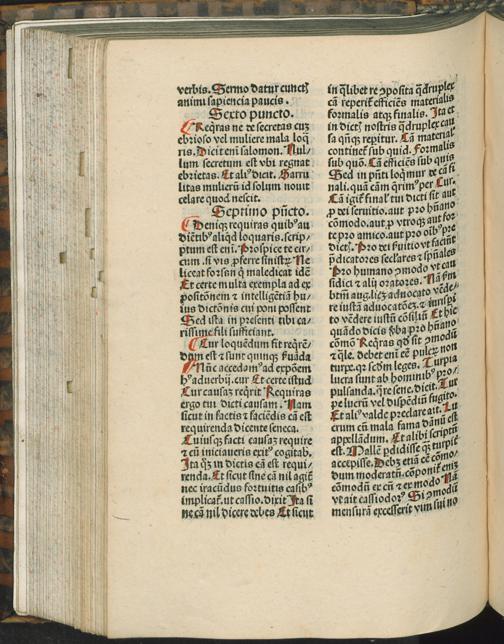 verbis. Sermo datur cunctꝭ
animi sapiencia paucis.
Sexto puncto.
Reqras ne te secretas cuꝫ
ebrioso vel muliere mala loq̄
ris. Dicit eni salomon. Nul-
lum secretum est vbi regnat
ebrietas. Et aliꝰ dicit. Garru
litas mulierū id solum nouit
celare quod nescit.
Septimo pūcto.
Deniqꝫ requiras quibꝰ au
diētibꝰ aliqd loquaris. scrip-
ptum est eni. Prospice te cir-
cum. si vis ꝓferre sinistrꝭ Ne
liceat forsan qͥ maledicat idē
Et certe multa exempla ad ex
positōnem ⁊ intelligētiā hu
ius dictōnis cui poni possent
Sed ista in presenti tibi ca-
rissime fili sufficiant.
Cur loquēdum fit reqrē-
dum est ⁊ sunt quinqꝫ ẜuāda
Nūc accedamꝰ ad expōem
hꝰ aduerbij. cur Et certe istud
Cur causaꝫ reqrit Requiras
ergo tui dicti causam. Nam
sicut in factis ⁊ faciēdis cā est
requirenda dicente seneca.
Cuiusqꝫ facti causaꝫ require
⁊ cū iniciaueris exitꝰ cogitab.
Ita qꝫ in dictis cā est requi-
renda. Et sicut sine cā nil agit̄
nec iracūdus fortuitis casibꝰ
implicat̄. ut cassio. dixit Ita si
ne cā nil dicere debes Et sicut
in qͥlibet re ꝯposita qͣdruplex
cā reperit̄ efficiēs materialis
formalis atqꝫ finalis. Ita et
in dictꝭ nostris qͣdruplex cau
sa qūqꝫ repitur. Cā material
continet̄ sub quid. Formalis
sub quō. Cā efficiēs sub quis
Sed in pn̄ti loqͥmur de cā fi
nali. quā cām qͣrimꝰ per Cur.
Cā igit̄ final tui dicti sit aut
ꝓ dei seruitio. aut pro hūano
cōmodo. aut ꝓ vtroqꝫ aut for
te pro amico. aut pro oibꝰ pre
dictꝭ. Pro dei ẜuitio vt faciūt
p̄dicatores seclares ⁊ spūales
Pro humano ꝯmodo vt cau
sidici ⁊ alij oratores. Nā ẜm
btm̄ aug. licꝫ aduocato vēde-
re iustā aduocatōeꝫ. ⁊ iurispi
to vēdere iustū cōsiliū Et hic
quādo dicis ꝟba pro hūano
cōmō Reqras qd sit ꝯmodū
⁊ qͣle. debet eni eē pulcꝝ non
turpe. qꝛ scdm̄ leges. Turpia
lucra sunt ab hominibꝰ pro
pulsanda. qͣre sene. dicit. Tur
pe lucrū vel dispēdiū fugito.
Et aliꝰ valde preclare ait. Lu
crum cū mala fama dānū est
appellādum. Et alibi scriptū
est. Malle ꝑdidisse qͣꝫ turpit̄
accepisse. Debꝫ etiā eē cōmo-
dum moderatū. cōponit̄ eniꝫ
cōmodū ex cū ⁊ ex modo Nā
vt ait cassiodorꝰ Si ꝯmodū
mensurā excesserit vim sui no